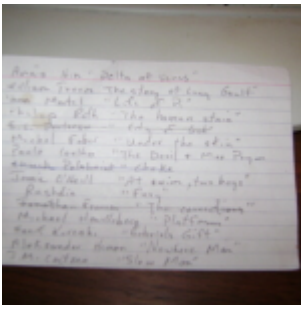 Anais Nin "Delta of Venus"
William Trevor The story of Lucy Gault"
Martel "Life of Pi"
Philip Roth "The human stain"
"City of God"
Michel Faber "Under the skin"
Paulo Coelho "The Devil + Miss Prym
Chuck Palahniuk - Choke
Jamie O'Neill "At swim, two boys"
Rushdie "Fury
Jonathan Franzen - The corrections
Michael Houellebecq "Platform"
Hanif Kureishi "Gabriels Gift"
Aleksandar Hemon "Nowhere Man"
J.M. Coetzee "Slow Man"